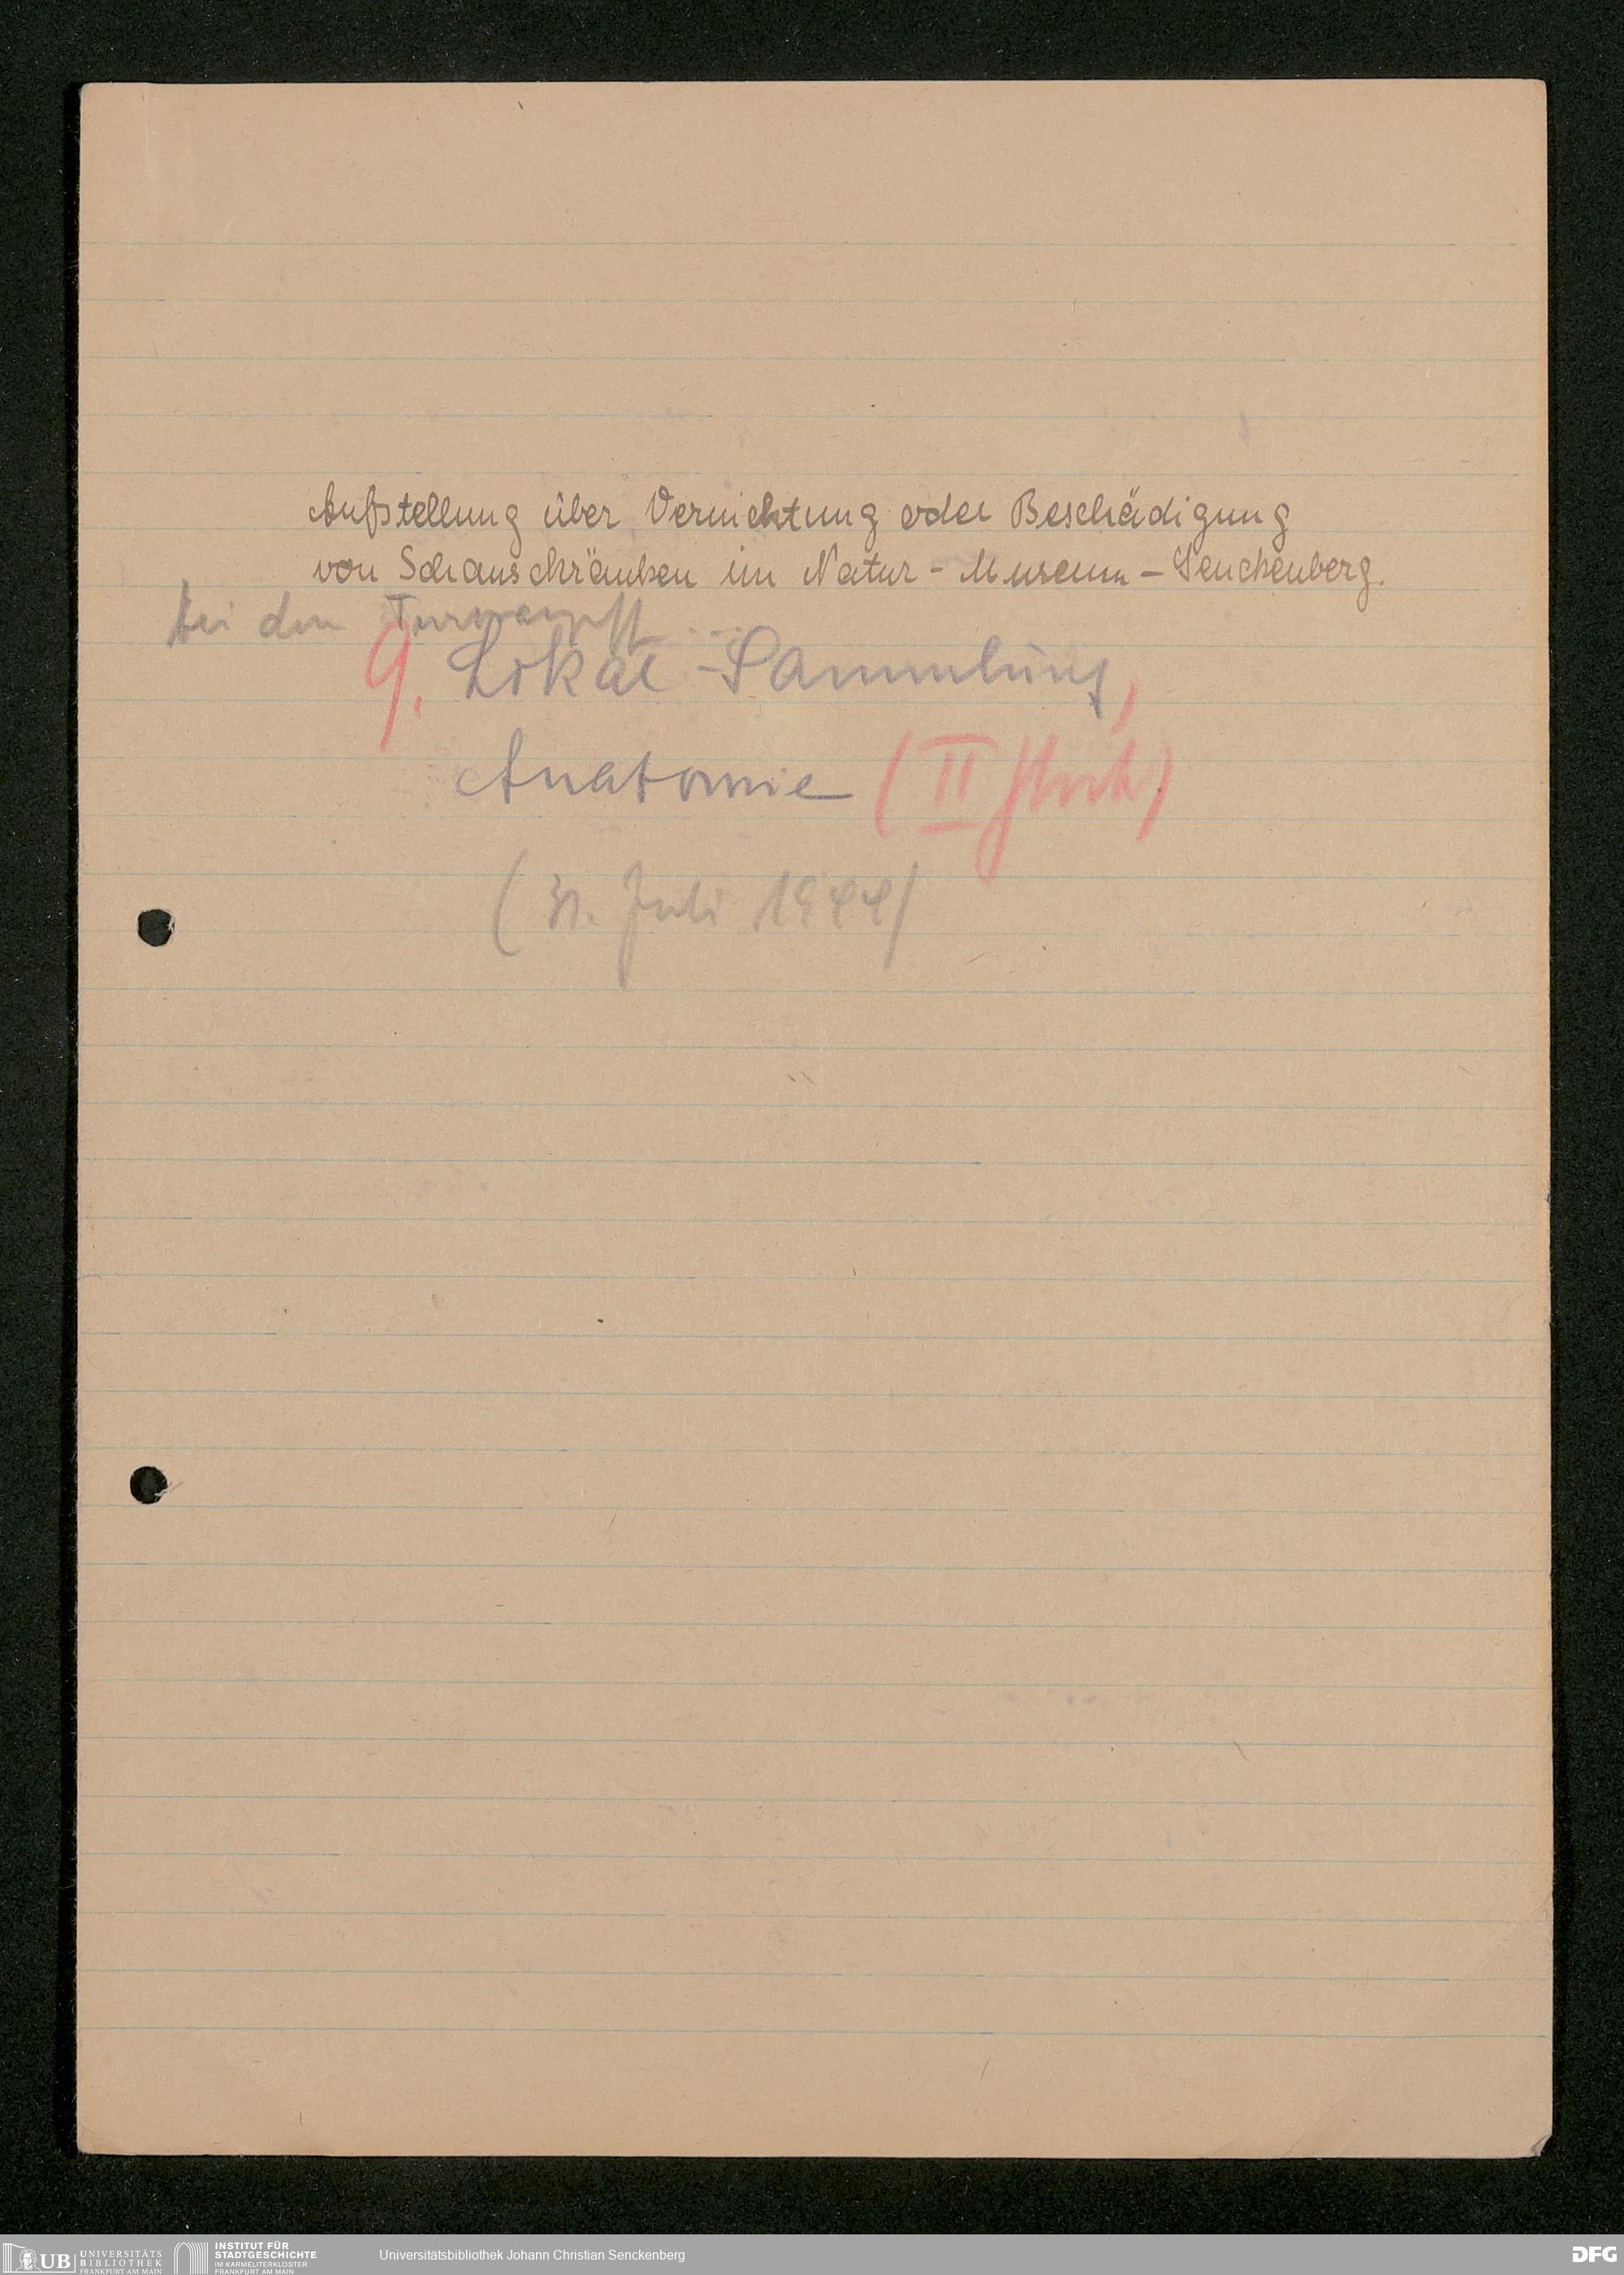 Aufstellung über Vernichtung oder Beschädigung
von Schauschränken im Natur-Museum-Senckenberg.
bei den
9. Lokal-Sammlung,
Anatomie (II Stock)
(31. Juli 1944)
UB UNIVERSITÄTS
BIBLIOTHEK
FRANKFURT AM MAIN
INSTITUT FÜR
STADTGESCHICHTE
IM KARMELITERKLOSTER
FRANKFURT AM MAIN
Universitätsbibliothek Johann Christian Senckenberg
DFG